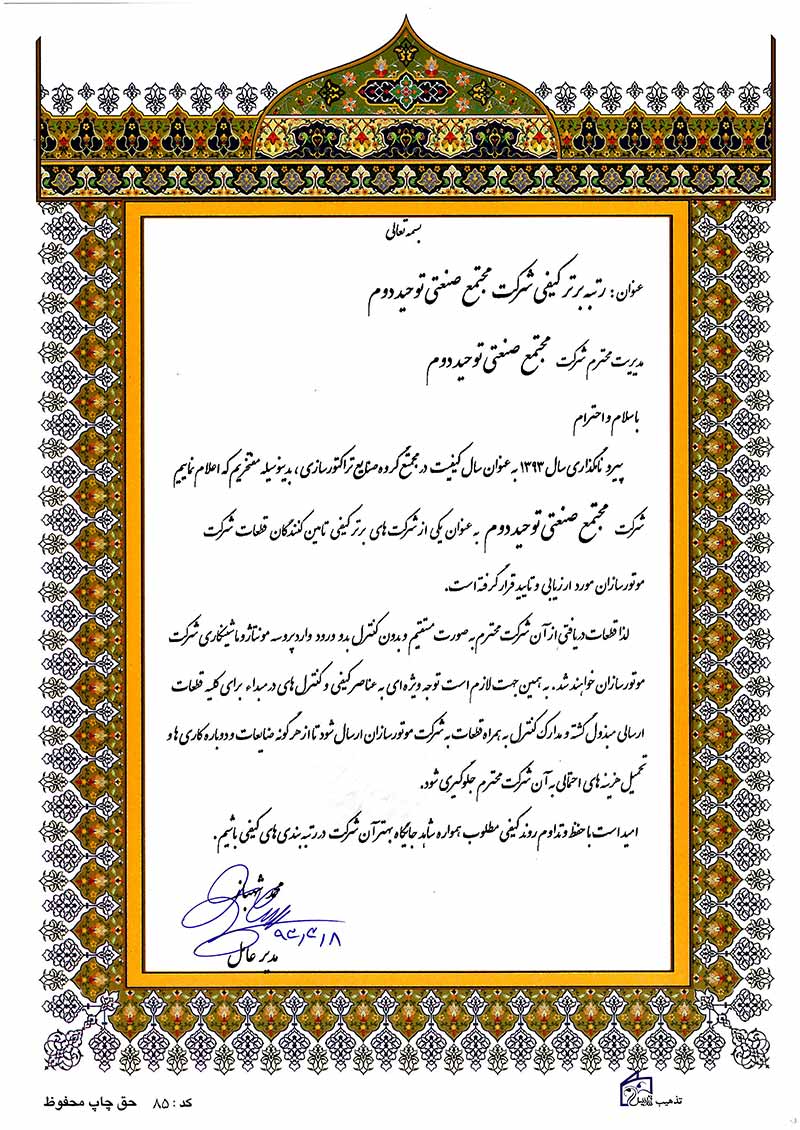 بسمه تعالی
عنوان: رتبه برتر کیفی شرکت مجتمع صنعتی توحید دوم
مدیریت محترم شرکت مجتمع صنعتی توحید دوم
با سلام و احترام
پیرو نامگذاری سال ۱۳۹۳ به عنوان سال کیفیت در مجتمع گروه صنایع تراکتورسازی، بدینوسیله مفتخریم که اعلام نماییم
شرکت مجتمع صنعتی توحید دوم به عنوان یکی از شرکت های برتر کیفی تامین کنندگان قطعات شرکت
موتورسازان مورد ارزیابی و تایید قرار گرفته است.
لذا قطعات دریافتی از آن شرکت محترم به صورت مستقیم و بدون کنترل بدو ورود وارد پروسه مونتاژ و ماشینکاری شرکت
موتورسازان خواهند شد. به همین جهت لازم است توجه ویژه ای به عناصر کیفی و کنترل های در مبداء برای کلیه قطعات
ارسالی مبذول گشته و مدارک کنترل به همراه قطعات به شرکت موتورسازان ارسال شود تا از هر گونه ضایعات و دوباره کاری ها و
تحمیل هزینه های احتمالی به آن شرکت محترم جلوگیری شود.
امید است با حفظ و تداوم روند کیفی مطلوب همواره شاهد جایگاه بهتر آن شرکت در رتبه بندی های کیفی باشیم.
محمد
۹۴,۴,۱۸
مدیر عامل
تذهیب
کد : ۸۵ حق چاپ محفوظ